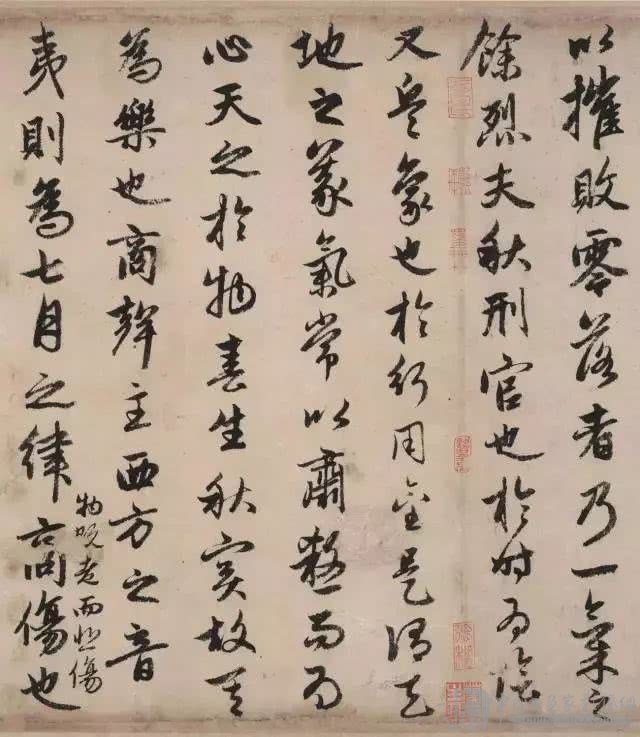 以摧敗零落者乃一氣之
餘烈夫秋刑官也於時為陰
又兵象也於行用金是謂天
地之義氣常以肅殺而為
心天之於物春生秋實故其
為樂也商聲主西方之音
夷則為七月之律商傷也
物既老而悲傷